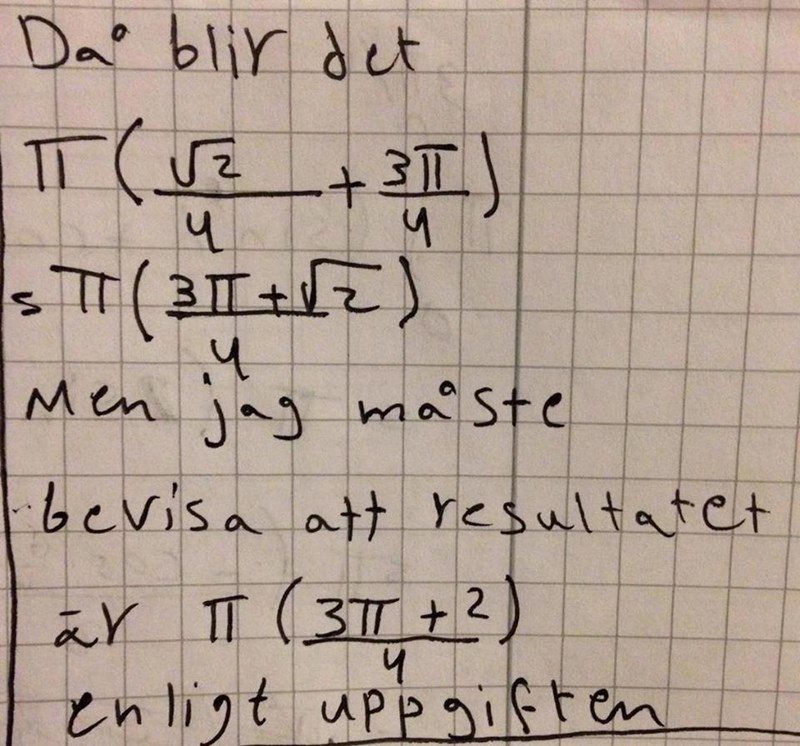 Då blir det
π(√2/4 + 3π/4)
= π(3π+√2/4)
Men jag måste
bevisa att resultatet
är π(3π+2/4)
enligt uppgiften